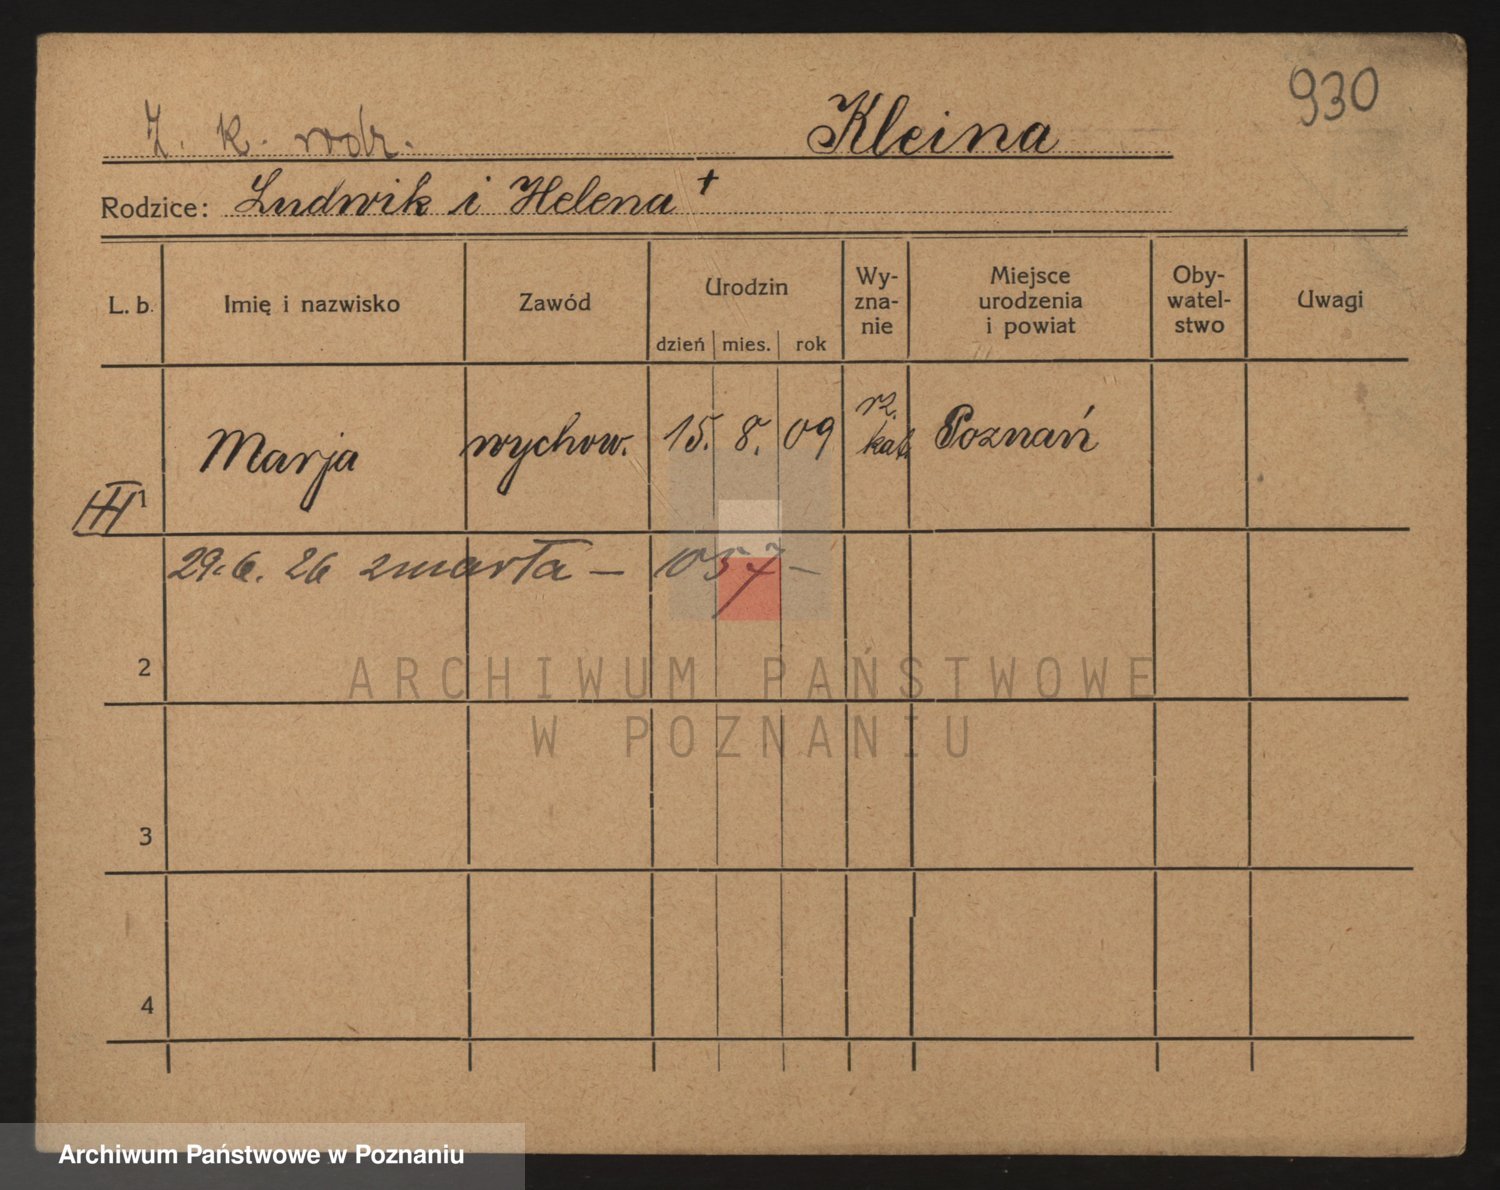 930
Z. k. rodz. Kleina
Rodzice: Ludwik i Helena +
L. b. Imię i nazwisko Zawód Urodzin Wy-zna-nie Miejsce urodzenia i powiat Oby-watel-stwo Uwagi
dzień mies. rok
Marja wychow. 15. 8. 09 rz. kat. Poznań
III 1
29. 6. 26 zmarła — 1057 —
2
ARCHIWUM PAŃSTWOWE
W POZNANIU
3
4
Archiwum Państwowe w Poznaniu